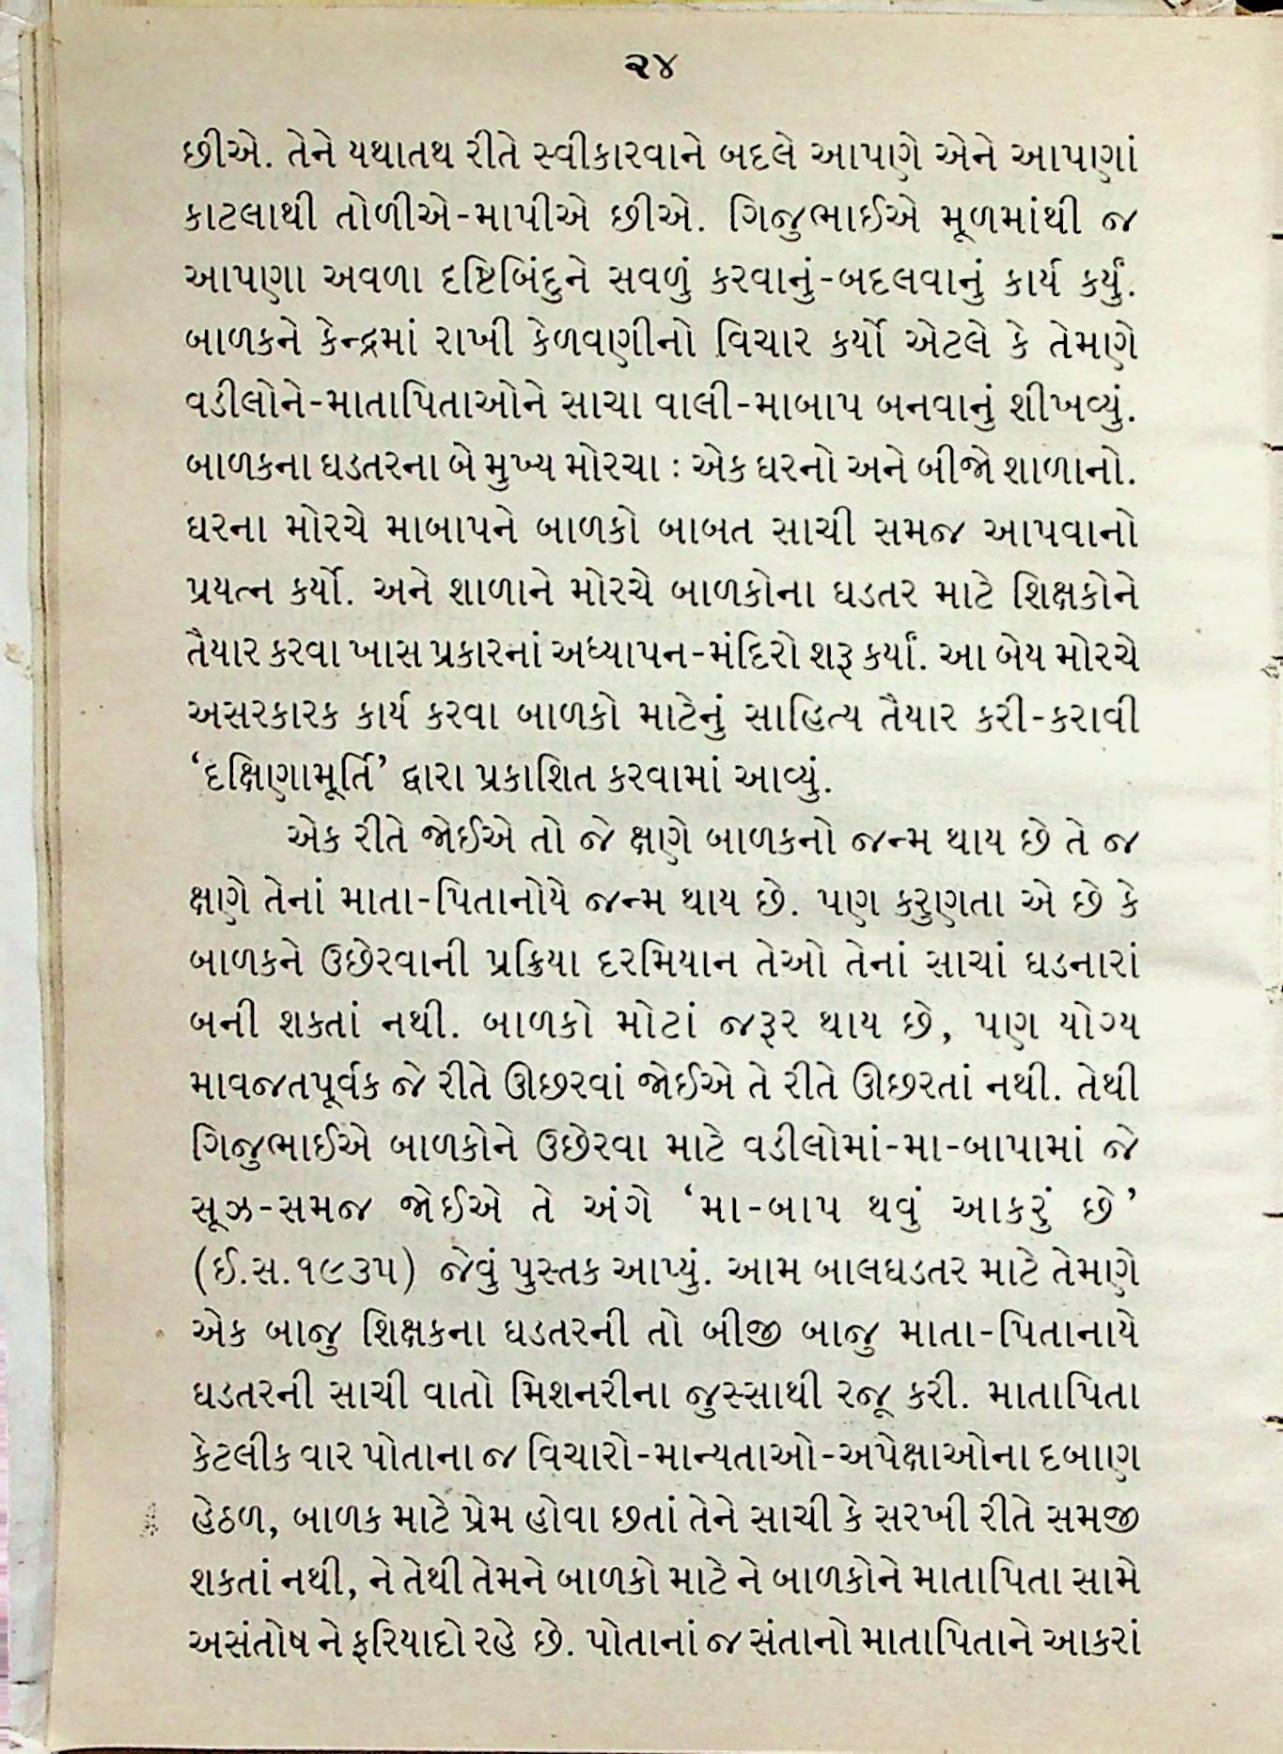 ૨૪
છીએ. તેને યથાતથ રીતે સ્વીકારવાને બદલે આપણે એને આપણાં
કાટલાથી તોળીએ-માપીએ છીએ. ગિજુભાઈએ મૂળમાંથી જ
આપણા અવળા દૃષ્ટિબિંદુને સવળું કરવાનું-બદલવાનું કાર્ય કર્યું.
બાળકને કેન્દ્રમાં રાખી કેળવણીનો વિચાર કર્યો એટલે કે તેમણે
વડીલોને-માતાપિતાઓને સાચા વાલી-માબાપ બનવાનું શીખવ્યું.
બાળકના ઘડતરના બે મુખ્ય મોરચા : એક ઘરનો અને બીજો શાળાનો.
ઘરના મોરચે માબાપને બાળકો બાબત સાચી સમજ આપવાનો
પ્રયત્ન કર્યો. અને શાળાને મોરચે બાળકોના ઘડતર માટે શિક્ષકોને
તૈયાર કરવા ખાસ પ્રકારનાં અધ્યાપન-મંદિરો શરૂ કર્યાં. આ બેય મોરચે
અસરકારક કાર્ય કરવા બાળકો માટેનું સાહિત્ય તૈયાર કરી-કરાવી
‘દક્ષિણામૂર્તિ’ દ્વારા પ્રકાશિત કરવામાં આવ્યું.
એક રીતે જોઈએ તો જે ક્ષણે બાળકનો જન્મ થાય છે તે જ
ક્ષણે તેનાં માતા-પિતાનોયે જન્મ થાય છે. પણ કરુણતા એ છે કે
બાળકને ઉછેરવાની પ્રક્રિયા દરમિયાન તેઓ તેનાં સાચાં ઘડનારાં
બની શકતાં નથી. બાળકો મોટાં જરૂર થાય છે, પણ યોગ્ય
માવજતપૂર્વક જે રીતે ઊછરવાં જોઈએ તે રીતે ઊછરતાં નથી. તેથી
ગિજુભાઈએ બાળકોને ઉછેરવા માટે વડીલોમાં-મા-બાપામાં જે
સૂઝ-સમજ જોઈએ તે અંગે ‘મા-બાપ થવું આકરું છે’
(ઈ.સ.૧૯૩૫) જેવું પુસ્તક આપ્યું. આમ બાલઘડતર માટે તેમણે
એક બાજુ શિક્ષકના ઘડતરની તો બીજી બાજુ માતા-પિતાનાયે
ઘડતરની સાચી વાતો મિશનરીના જુસ્સાથી રજૂ કરી. માતાપિતા
કેટલીક વાર પોતાના જ વિચારો-માન્યતાઓ-અપેક્ષાઓના દબાણ
હેઠળ, બાળક માટે પ્રેમ હોવા છતાં તેને સાચી કે સરખી રીતે સમજી
શકતાં નથી, ને તેથી તેમને બાળકો માટે ને બાળકોને માતાપિતા સામે
અસંતોષ ને ફરિયાદો રહે છે. પોતાનાં જ સંતાનો માતાપિતાને આકરાં